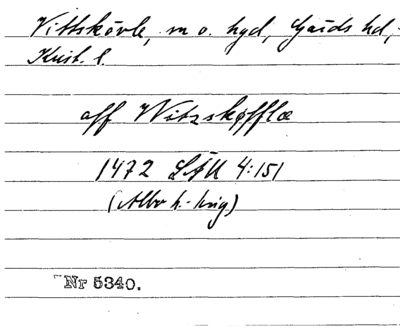 Vittskövle, sn o. hgd, Gärds hd,
Krist. l.
aff Witzskøfflæ
1472 LÄU 4:151
(Albo h.-krig)
Nr 5340.